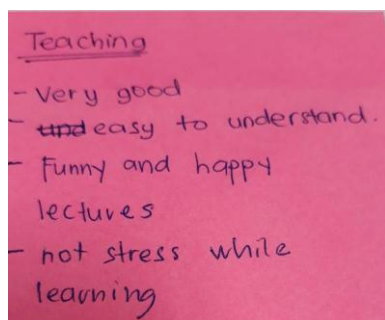 Teaching
- Very good
- easy to understand.
- Funny and happy
lectures
- not stress while
learning